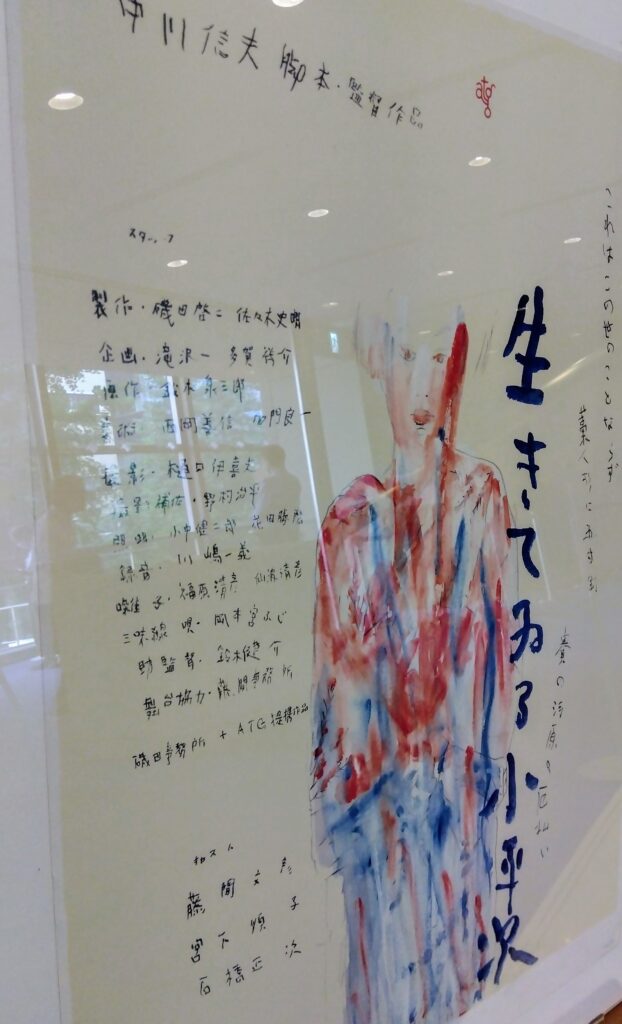 中川信夫 脚本・監督作品
atg
これはこの世のことならず
生きてゐる小平次
賽の河原の石积い
スタッフ
製作・磯田啓二 佐々木史朗
企画・滝沢一 多賀祥介
原作・鈴木泉三郎
美術・西岡善信
撮影・樋口伊喜夫
撮影補佐・野村治平
照明・小中健二郎
録音・川嶋一義
囃子・福原清彦 仙波清彦
三味線 唄・岡本宮ふじ
助監督・鈴木健介
製作協力・藤間事務所
磯田事務所 + ATG提携作品
キャスト
藤間文彦
宮下順子
石橋正次